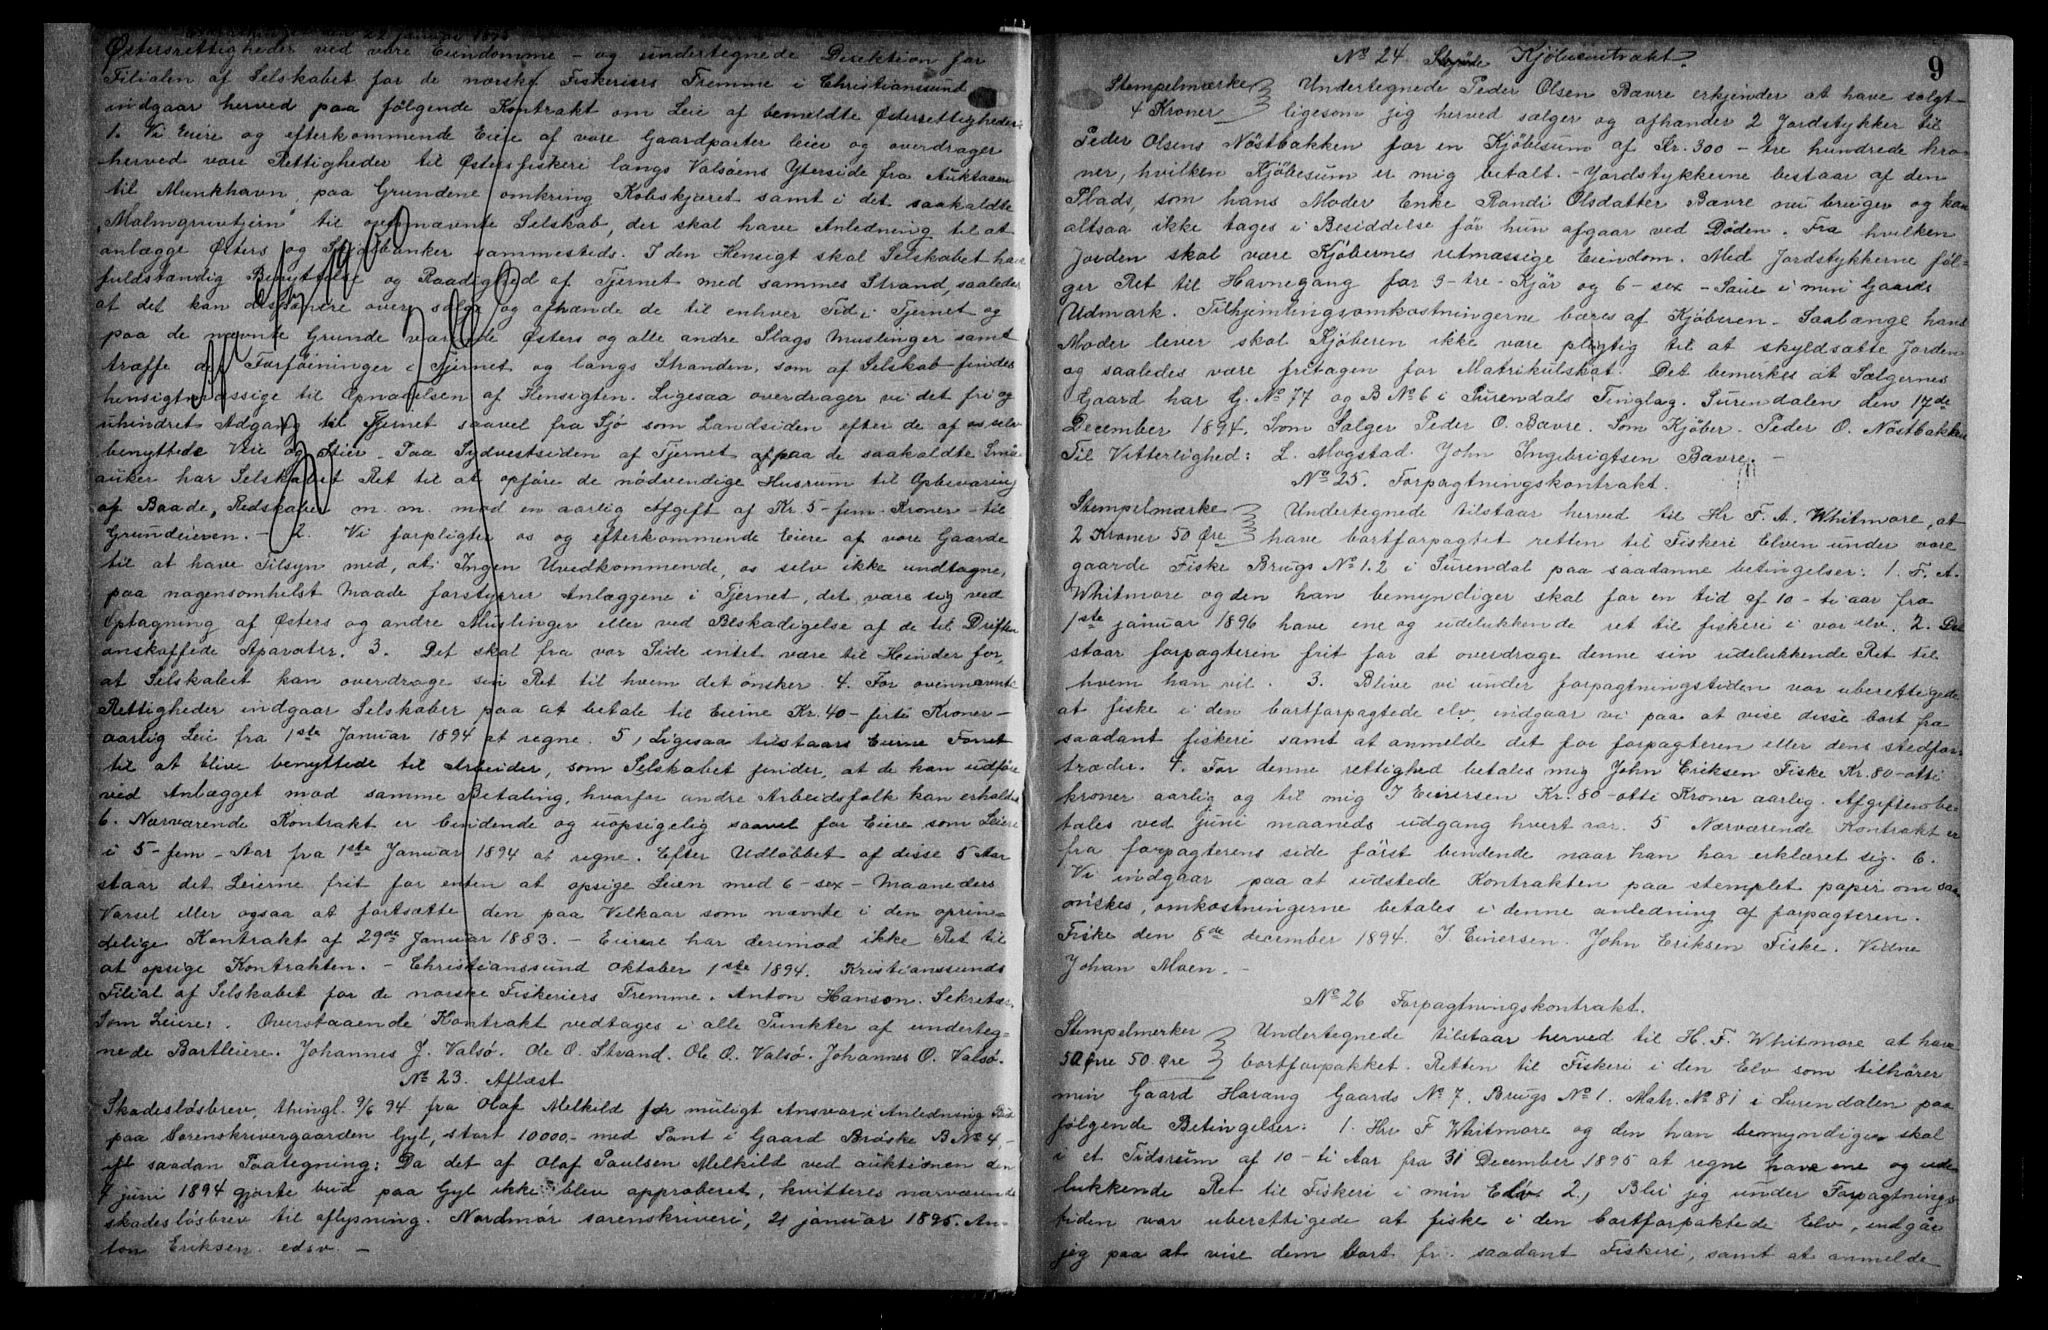 22 januar 1895
Østersrettigheder ved vore Eiendomme – og undertegnede Direktion for
Filialen af Selskabet for de norske Fiskeriers Fremme i Christianssund
indgaar herved paa følgende Kontrakt om Leie af bemeldte Østerrettigheder:
1. Vi Eiere og efterkommende Eiere af vore Gaardparter leie og overdrager
herved vore Rettigheder til Østersfiskeri langs Valsøens Yterside fra
til Munkhavn, paa Grundene omkring Kobskjæret samt i det saakaldte
"Malmgruvtjern" til ovennævnte Selskab, der skal have Anledning til at
anlægge Østers og banker sammesteds. I den Hensigt skal Selskabet have
fuldstændig Benyttelse og Raadighed af Tjernet med sammes Strand, saaledes
at det kan disponere over, sælge og afhænde de til enhver Tid i Tjernet og
paa de nævnte Grunde værende Østers og alle andre Slags Muslinger samt
træffe de Forføininger i Tjernet og langs Stranden, som af Selskab findes
hensigtmæssige til Opnaaelsen af Hensigten. Ligesaa overdrager vi det fri og
uhindret Adgang til Tjernet saavel fra Sjø som Landsiden efter de af os selv
benyttede Veie og Stier. Paa Sydvestsiden af Tjernet og paa de saakaldte Små-
auker har Selskabet Ret til at opføre de nødvendige Husrum til Opbevaring
af Baade, Redskaber m. m. mod en aarlig Afgift af Kr. 5 – fem – Kroner – til
Grundeieren. – 2. Vi forpligter os og efterkommende Eiere af vore Gaarde
til at have Tilsyn med, at Ingen Uvedkommende, os selv ikke undtagne,
paa nogensomhelst Maade forstyrrer Anlæggene i Tjernet, det være sig ved
Optagning af Østers og andre Muslinger eller ved Beskadigelse af de til Driften
anskaffede Aparater. 3. Det skal fra vor Side intet være til Hinder for,
at Selskabet kan overdrage sin Ret til hvem det ønsker. 4. For ovennævnte
Rettigheder indgaar Selskabet paa at betale til Eierne Kr. 40 – firti Kroner –
aarlig Leie fra 1ste Januar 1894 at regne. 5, Ligesaa tilstaars Eierne Forret
til at blive benyttede til Arbeider, som Selskabet finder, at de kan udføre
ved Anlægget mod samme Betaling, hvorfor andre Arbeidsfolk kan erholdes
6. Nærværende Kontrakt er bindende og uopsigelig saavel for Eiere som Leiere
i 5 – fem – Aar fra 1ste Januar 1894 at regne. Efter Udløbbet af disse 5 Aar
staar det Leierne frit for enten at opsige Leien med 6 – sex – Maaneders
Varsel eller ogsaa at fortsætte den paa Vilkaar som nævnte i den oprin-
delige Kontrakt af 29de Januar 1883. – Eierne har derimod ikke Ret til
at opsige Kontrakten. – Christianssund Oktober 1ste 1894. Kristianssunds
Filial af Selskabet for de norske Fiskeriers Fremme. Anton Hanson. Sekretær.
Som Leiere: Overstaaende Kontrakt vedtages i alle Punkter af underteg-
nede Bortleiere. Johannes J. Valsø. Ole O. Strand. Ole O. Valsø. Johannes O. Valsø.
No 23. Aflæst
Skadesløsbrev, thingl. 9/6 94 fra Olaf Melkild for muligt Ansvar i Anledning Bud
paa Sorenskrivergaarden Gyl, stort 10000,– med Pant i Gaard Brøske B No 4 –
saadan Paategning: Da det af Olaf Paulsen Melkild ved auktionen den
7 juni 1894 gjorte bud paa Gyl ikke blev approberet, kvitteres nærværende
skadesløsbrev til aflysning. Nordmør sorenskriveri, 21 januar 1895. An-
ton Eriksen edsv. –
9
No 24 Kjøbekontrakt.
Stempelmærke Undertegnede Peder Olsen Bævre erkjender at have solgt
4 Kroner ligesom jeg herved sælger og afhænder 2 Jordstykker til
Peder Olsens Nøstbakken for en Kjøbesum af Kr. 300 – tre hundrede kro-
ner, hvilken Kjøbesum er mig betalt. – Jordstykkerne bestaar af den
Plads, som hans Moder Enke Randi Olsdatter Bævre nu bruger og kan
altsaa ikke tages i Besiddelse før hun afgaar ved Døden. Fra hvilken
Jorden skal være Kjøbernes retmæssige Eiendom. Med Jordstykkerne føl-
ger Ret til Havnegang for 3 – tre – Kjør og 6 – sex – Sauer i min Gaards
Udmark. Tilhjemlingsomkostningerne bæres af Kjøberen. – Saalænge hans
Moder lever skal Kjøberen ikke være pligtig til at skyldsætte Jorden
og saaledes være fritagen for Matrikulskat. Det bemerkes at Sælgernes
Gaard har G. No 77 og B No 6 i Surendals Tinglag. Surendalen den 17de
December 1894. Som Sælger Peder O. Bævre. Som Kjøber. Peder O. Nøstbakken
Til Vitterlighed: L. Mogstad. John Ingebrigtsen Bævre. –
No 25. Forpagtningskontrakt.
Stempelmærke Undertegnede tilstaar herved til Hr F. A. Whitmore, at
2 Kroner 50 Øre have bortforpagtet retten til Fiskeri Elven under vore
gaarde Fiske Brugs No 1. 2 i Surendal paa saadanne betingelser: 1. F. A.
Whitmore og den han bemyndiger skal for en tid af 10 – ti aar fra
1ste januar 1896 have ene og udelukkende ret til fiskeri i vor elv. 2. Det
staar forpagteren frit for at overdrage denne sin udelukkende Ret til
hvem han vil. 3. Blive vi under forpagtningstiden var uberettigede
at fiske i den bortforpagtede elv, indgaar vi paa at vise disse bort fra
saadant fiskeri samt at anmelde det for forpagteren eller dens stedfor-
træder. 4. For denne rettighed betales mig John Eriksen Fiske Kr. 80 – otti
kroner aarlig og til mig J Einersen Kr. 80 – otti Kroner aarlig. Afgiften be-
tales ved juni maaneds udgang hvert aar. 5 Nærværende Kontrakt er
fra forpagterens side først bindende naar han har erklæret sig. 6.
Vi indgaar paa at udstede Kontrakten paa stemplet papir om saa
ønskes, omkostningerne betales i denne anledning af forpagteren.
Fiske den 8de december 1894. J. Einersen. John Eriksen Fiske. Vidne
Johan Moen. –
No 26 Forpagtningskontrakt.
Stempelmerker Undertegnede tilstaar herved til H. F. Whitmore at have
50 øre 50. Øre bortforpakket. Retten til Fiskeri i den Elv som tilhører
min Gaard Harang Gaards No 7. Brugs No 1. Matr. No 81 i Surendalen paa
følgende Betingelser: 1. Hr F Whitmore og den han bemyndiger skal
i et Tidsrum af 10 – ti Aar fra 31 December 1895 at regne have ene og ude-
lukkende Ret til Fiskeri i min Elv. 2, Blir jeg under Forpagtnings-
tiden var uberettigede at fiske i den bortforpaktede Elv, indgår
jeg paa at vise dem bort fr. saadant Fiskeri, samt at anmelde